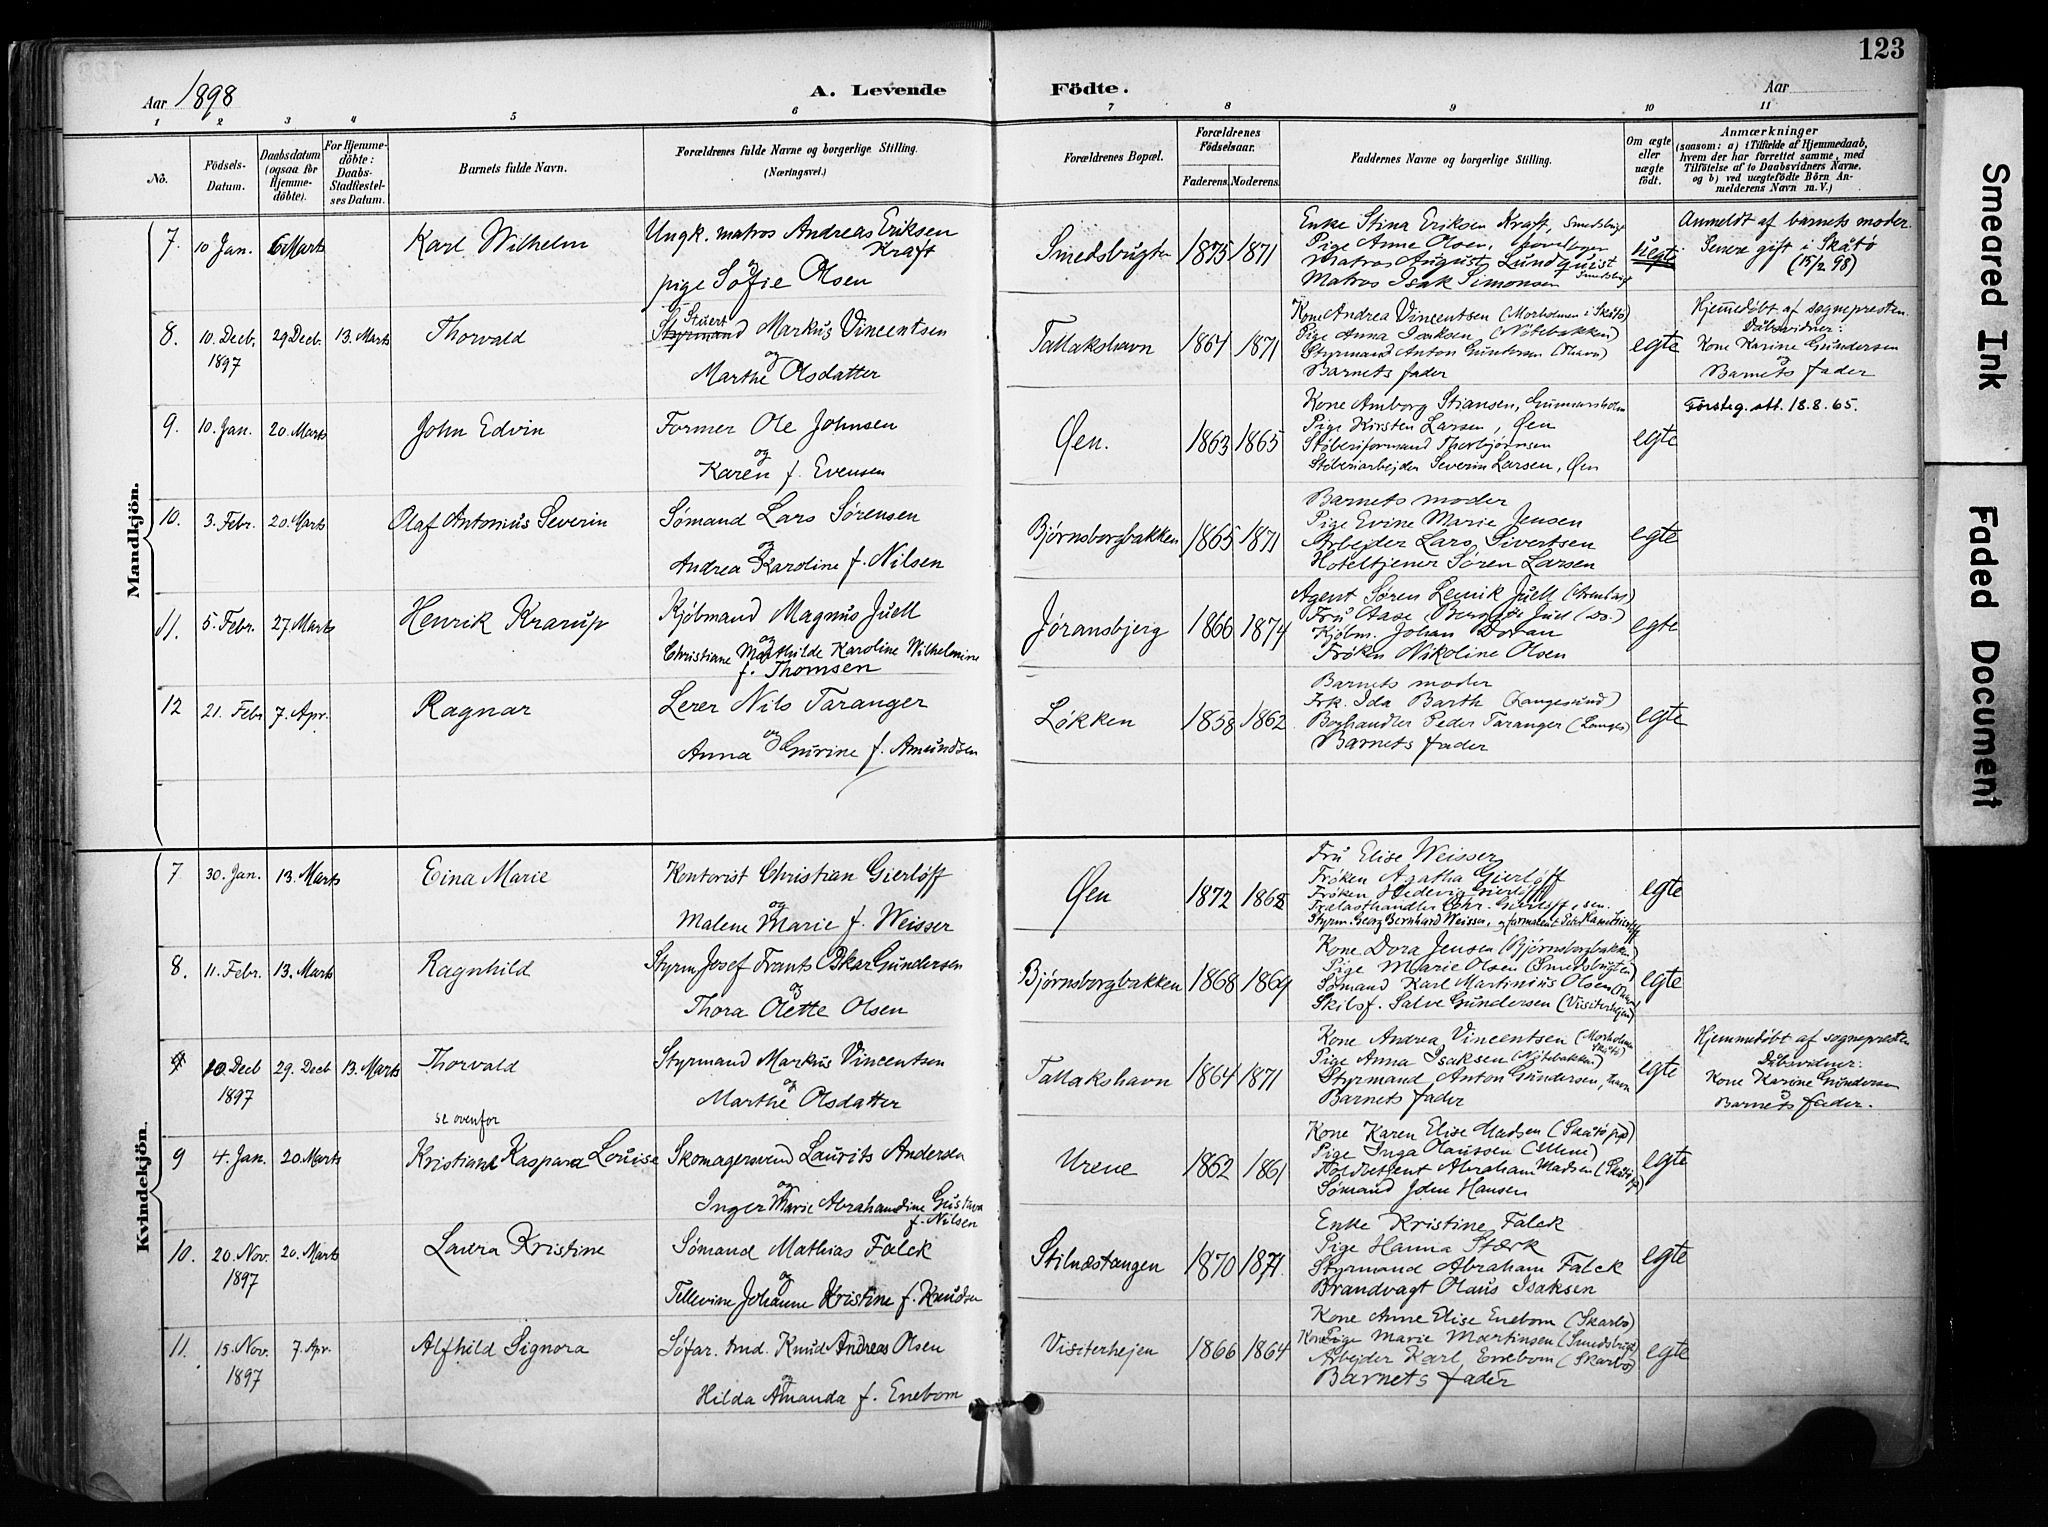 123
Aar 1898
A. Levende Födte.
Aar
1 2 3 4 5 6 7 8 9 10 11
No.
Födsels-Datum.
Daabsdatum (ogsaa for Hjemme-döbte).
For Hjemme-döbte: Daabs-Stadfæstel-ses Datum.
Barnets fulde Navn.
Forældrenes fulde Navne og borgerlige Stilling. (Næringsvei.)
Forældrenes Bopæl.
Forældrenes Födselsaar.
Faderens. Moderens.
Faddernes Navne og borgerlige Stilling.
Om ægte eller uægte födt.
Anmærkninger
(saasom: a) i Tilfælde af Hjemmedaab, hvem der har forrettet samme, med Tilföielse af to Daabsvidners Navne. og b) ved uægtefödte Börn An-melderens Navn m. V.)
Mandkjön.
7. 10 Jan. 6 Marts Karl Wilhelm
Ungk. matros Andreas Eriksen Kraft
og
pige Sofie Olsen
Smedsbugtn 1875 1871
Enke Stina Eriksen Kraft, Smedsbugt
Pige Anne Olsen,
Matros August Lundquist
Matros Isak Simonsen Smedsbugt
uegte
Anmeldt af barnets moder.
Senere gift i Skåtø
(15/2 98)
8. 10. Decb. 1897 29 Decb. 13. Marts Thorvald
Stuert
Styrmand Markus Vincentsen
og
Marthe Olsdatter
Tallakshavn 1864 1871
Kone Andrea Vincentsen (Morholmen i Skåtø)
Pige Anna Isaksen (Nötebakken)
Styrmand Anton Gundersen (Havn)
Barnets fader
egte
Hjemmedøbt af sognepresten.
Dåbsvidner:
Kone Karine Gundersen
og
Barnets fader
9. 10. Jan. 20. Marts John Edvin
Former Ole Johnsen
og
Karen f. Evensen
Øen. 1863 1865
Kone Amborg Stiansen, Gunnarsholm
Pige Kirsten Larsen, Øen
Støberiformand Thorbjørnsen
Støberiarbejder Severin Larsen, Øen
egte
Førsteg. att. 18.8.65.
10. 3. Febr. 20. Marts Olaf Antonius Severin
Sømand Lars Sørensen
og
Andrea Karoline f. Nilsen
Bjørnsborgbakken 1865 1871
Barnets moder
Pige Evine Marie Jensen
Arbejder Lars Sivertsen
Hoteltjener Søren Larsen
egte
11. 5. Febr. 27. Marts Henrik Krarup
Kjøbmand Magnus Juell
og
Christiane Mathilde Karoline Wilhelmine
f. Thomsen
Jøransbjerg 1866 1874
Agent Søren Lemik Juell (Arendal)
Fru Aase Juell (Do.)
Kjøbm. Johan Doran
Frøken Nikoline Olsen
egte
12 21. Febr 7. Apr. Ragnar
Lerer Nils Taranger
og
Anna Gurine f. Amundsen
Løkken 1858 1862
Barnets moder
Frk. Ida Barth (Langesund)
Boghandler Peder Taranger (Langes)
Barnets fader
egte
Kvindekjön.
7 30. Jan. 13. Marts Eina Marie
Kontorist Christian Gierløff
og
Malene Marie f. Weisser
Øen 1872 1868
Fru Elise Weisser
Frøken Agatha Gierløff
Frøken Hedevig Gierløff
Trælasthandler Chr. Gierløff, sen.
Styrm. Georg Bernhard Weisser,
egte
8. 11. Febr. 13. Marts Ragnhild
Styrm. Josef Frants Oskar Gundersen
og
Thora Olette Olsen
Bjørnsborgbakken 1868 1869
Kone Dora Jensen (Bjørnsborgbakken)
Pige Marie Olsen (Smedsbugten)
Sømand Karl Martinius Olsen
Skibsf. Salve Gundersen (Visiterhejen)
egte
9 10. Decb 1897 29. Decb 13. Marts Thorvald
se ovenfor
Styrmand Markus Vincentsen
og
Marthe Olsdatter
Tallakshavn 1864 1871
Kone Andrea Vincentsen (Morholmen Skåtø)
Pige Anna Isaksen (Nötebakken)
Styrmand Anton Gundersen, Havn
Barnets fader
egte
Hjemmedøbt af sognepresten
Dåbsvidner:
Kone Karine Gundersen
og
Barnets fader.
9 4. Jan. 20. Marts Kristiane Kaspara Louise
Skomagersvend Laurits Andersen
og
Inger Marie Abrahamdine Gustava
f. Nilsen
Urene 1862 1861
Kone Karen Elise Madsen (Skåtø)
Pige Inga Olaussen (Urene)
Abraham Madsen (Skåtø)
Sømand John Hansen
egte
10. 20. Nov. 1897 20. Marts Laura Kristine
Sømand Mathias Falck
og
Tellevine Johanne Kristine f. Knudsen
Stilnæstangen 1870 1871.
Enke Kristine Falck
Pige Hanna Stærk
Styrmand Abraham Falck
Brandvagt Olaus Isaksen
egte
11. 15. Nov. 1897 7. Apr. Alfhild Signora
Søfar. tmd. Knud Andreas Olsen
og
Hilda Amanda f. Enebom
Visiterhejen 1866 1864
Kone Anne Elise Enebom (Skarbo)
Kone Pige Marie Martinsen (Smedsbugt)
Arbejder Karl Enebom (Skarbo)
Barnets fader
egte
Smeared Ink
Faded Document